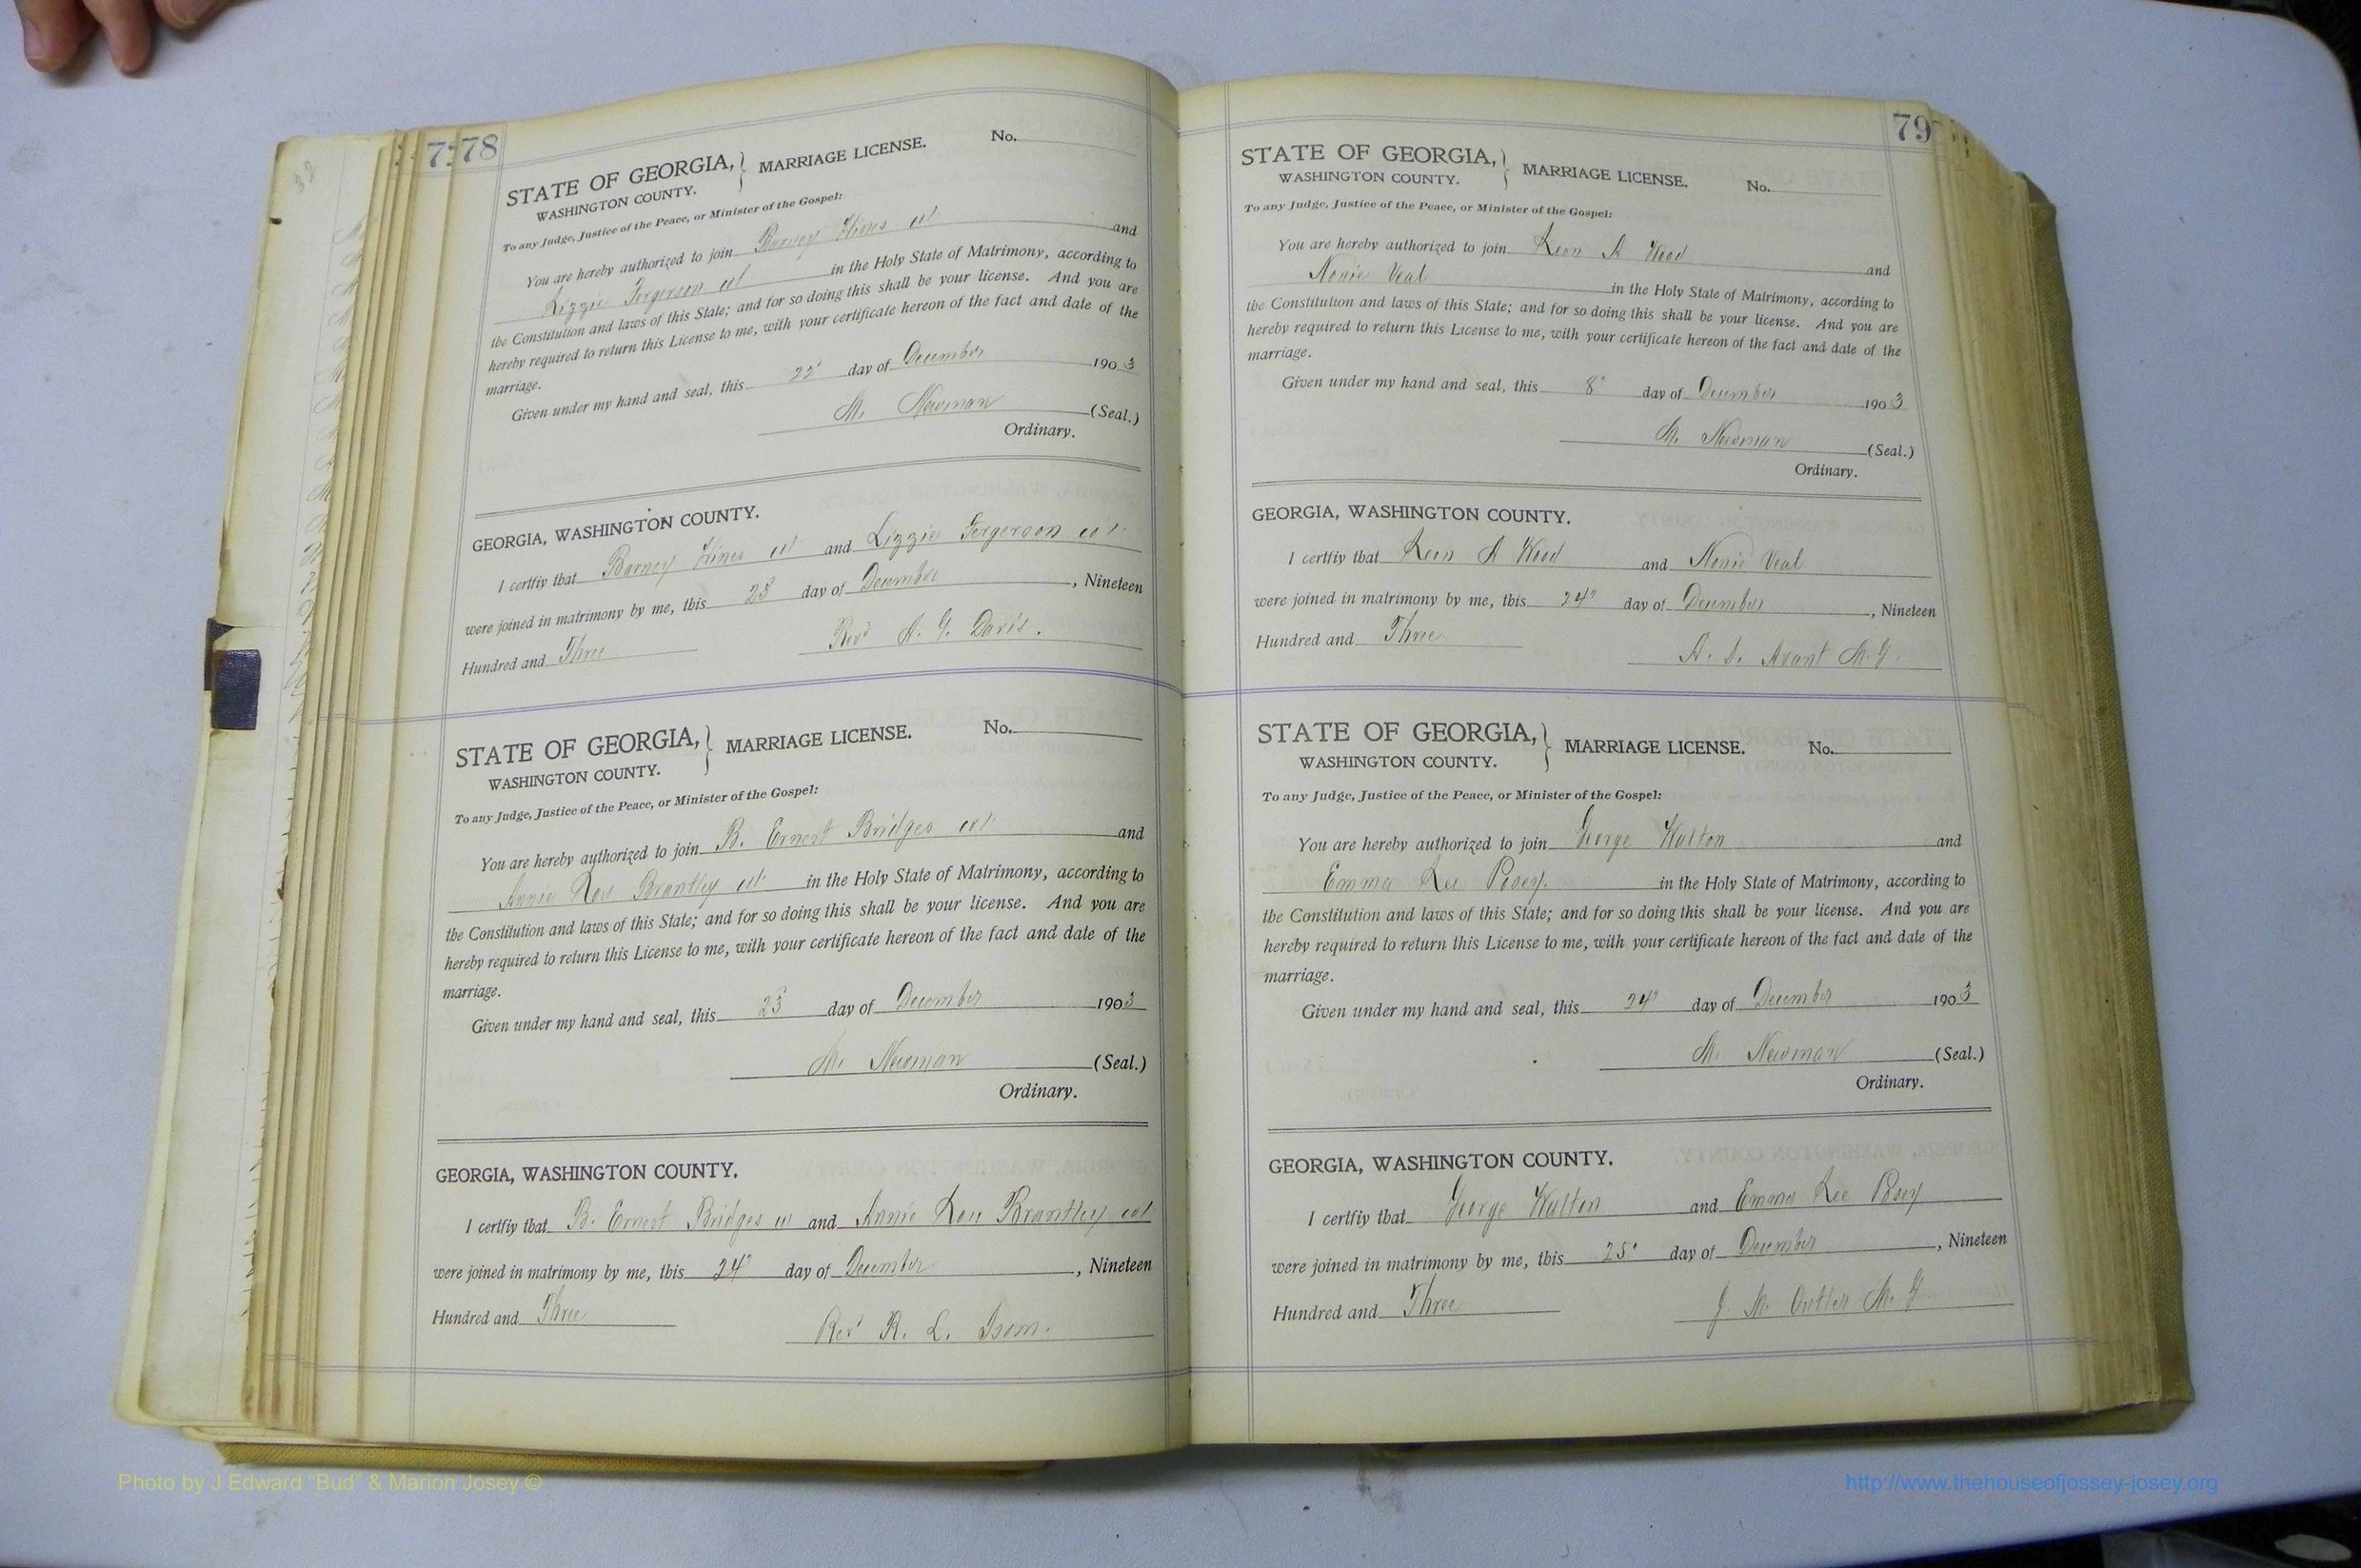 78
STATE OF GEORGIA, } MARRIAGE LICENSE. No.
WASHINGTON COUNTY.
To any Judge, Justice of the Peace, or Minister of the Gospel:
You are hereby authorized to join Barney Hines col and
Lizzie Fergerson col in the Holy State of Matrimony, according to
the Constitution and laws of this State; and for so doing this shall be your license. And you are
hereby required to return this License to me, with your certificate hereon of the fact and date of the
marriage.
Given under my hand and seal, this 22 day of December 1903
M. Newman (Seal.)
Ordinary.
GEORGIA, WASHINGTON COUNTY.
I certfiy that Barney Hines col and Lizzie Fergerson col
were joined in matrimony by me, this 23 day of December, Nineteen
Hundred and Three
Revd A. G. Davis.
STATE OF GEORGIA, } MARRIAGE LICENSE. No.
WASHINGTON COUNTY.
To any Judge, Justice of the Peace, or Minister of the Gospel:
You are hereby authorized to join B. Ernest Bridges col and
Annie Lou Brantley col in the Holy State of Matrimony, according to
the Constitution and laws of this State; and for so doing this shall be your license. And you are
hereby required to return this License to me, with your certificate hereon of the fact and date of the
marriage.
Given under my hand and seal, this 23 day of December 1903
M. Newman (Seal.)
Ordinary.
GEORGIA, WASHINGTON COUNTY.
I certfiy that B. Ernest Bridges col and Annie Lou Brantley col
were joined in matrimony by me, this 24" day of December, Nineteen
Hundred and Three
Rev R. L. Isom.
79
STATE OF GEORGIA, } MARRIAGE LICENSE. No.
WASHINGTON COUNTY.
To any Judge, Justice of the Peace, or Minister of the Gospel:
You are hereby authorized to join Leon A Wood and
Nonie Veal in the Holy State of Matrimony, according to
the Constitution and laws of this State; and for so doing this shall be your license. And you are
hereby required to return this License to me, with your certificate hereon of the fact and date of the
marriage.
Given under my hand and seal, this 8" day of December 1903
M. Newman (Seal.)
Ordinary.
GEORGIA, WASHINGTON COUNTY.
I certfiy that Leon A Wood and Nonie Veal
were joined in matrimony by me, this 24" day of December, Nineteen
Hundred and Three
Avant M.G.
STATE OF GEORGIA, } MARRIAGE LICENSE. No.
WASHINGTON COUNTY.
To any Judge, Justice of the Peace, or Minister of the Gospel:
You are hereby authorized to join George Walton and
Emma Lee Posey in the Holy State of Matrimony, according to
the Constitution and laws of this State; and for so doing this shall be your license. And you are
hereby required to return this License to me, with your certificate hereon of the fact and date of the
marriage.
Given under my hand and seal, this 24" day of December 1903
M. Newman (Seal.)
Ordinary.
GEORGIA, WASHINGTON COUNTY.
I certfiy that George Walton and Emma Lee Posey
were joined in matrimony by me, this 25" day of December, Nineteen
Hundred and Three
J. M. Outler M. G
Photo by J Edward “Bud” & Marion Josey ©
http://www.thehouseofjossey-josey.org